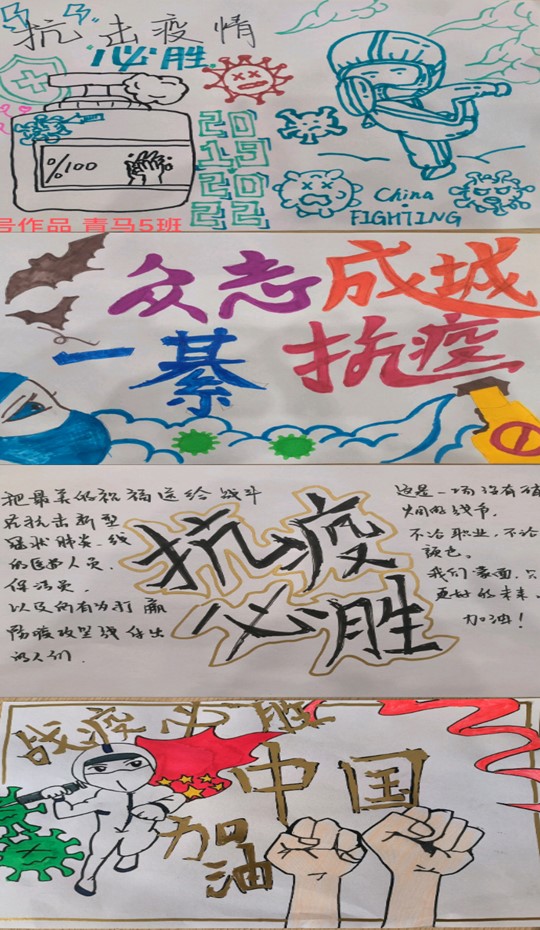 抗击疫情
必胜
%100
20
19
20
22
China
FIGHTING
号作品 青马5班
众志成城
一綦 抗疫
把最美的祝福送给战斗
在抗击新型
冠状肺炎一线
的医务人员.
保洁员.
以及所有为打赢
防疫攻坚战付出
的人们.
抗疫
必胜
这是一场没有硝
烟的战争.
不论职业,不论
颜色.
我们蒙面,只
更好的未来.
加油!
战疫必胜
中国
加油